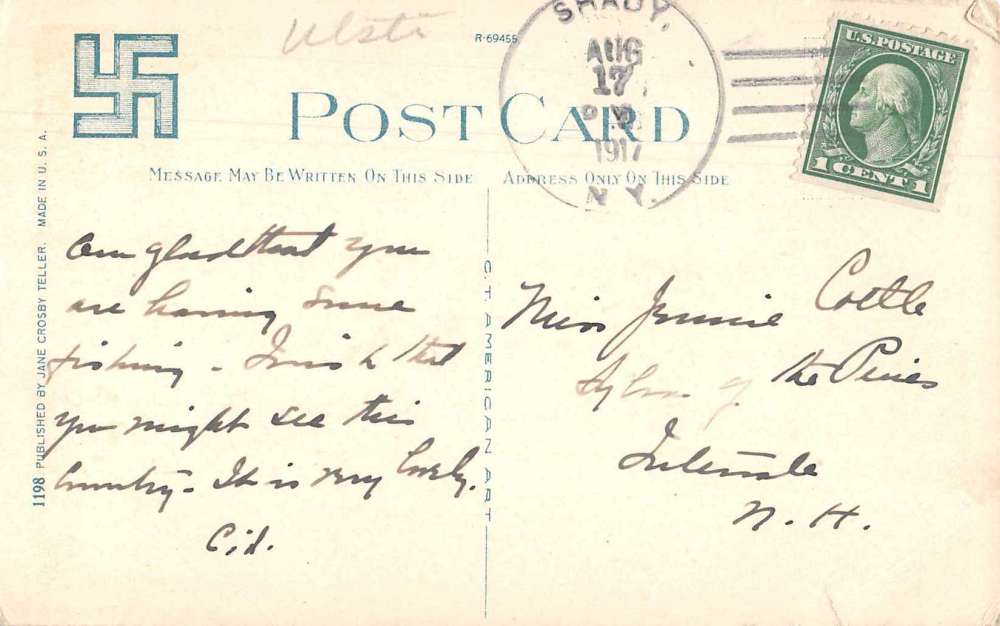 Ulste
R-69455
SHADY,
AUG
17
P M
1917
N.Y.
U.S. POSTAGE
1 CENT 1
POST CARD
MESSAGE MAY BE WRITTEN ON THIS SIDE
ADDRESS ONLY ON THIS SIDE
1198 PUBLISHED BY JANE CROSBY TELLER. MADE IN U.S.A.
C.T. AMERICAN ART
Am glad that you
are having some
fishing - I wish that
you might see this
country - It is very lovely.
Cid.
Miss Jennie Cottle
of the Pines
Intervale
N. H.